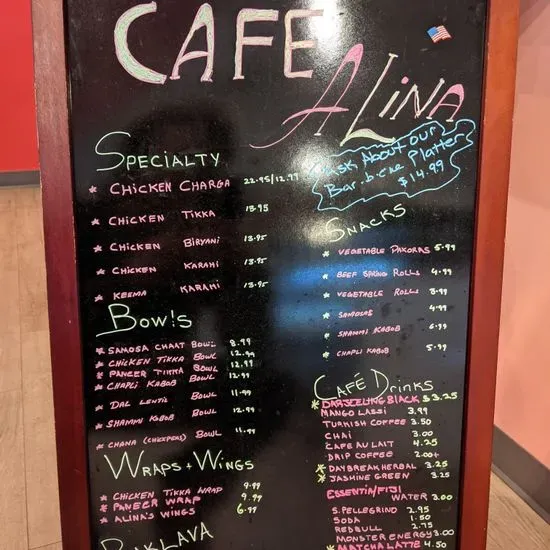 CAFE
ALINA
Ask About our
Bar.b.cue Platter
$14.99
SPECIALTY
* CHICKEN CHARGA 22.95/12.97
* CHICKEN TIKKA 13.95
* CHICKEN BIRYANI 13.95
* CHICKEN KARAHI 13.95
* KEEMA KARAHI 13.95
Bowls
* SAMOSA CHAAT BOWL 8.99
* CHICKEN TIKKA BOWL 12.99
* PANEER TIKKA BOWL 12.99
* CHAPLI KABOB BOWL 12.99
* DAL LENTIL BOWL 11.99
* SHAMMI KABOB BOWL 12.99
* CHANA (CHICKPEAS) BOWL 11.99
WRAPS + WINGS
* CHICKEN TIKKA WRAP 9.99
* PANEER WRAP 9.99
* ALINA'S WINGS 6.99
BAKLAVA
SNACKS
* VEGETABLE PAKORAS 5.99
* BEEF SPRING ROLLS 4.99
* VEGETABLE ROLLS 3.99
* SAMOSAS 4.99
* SHAMMI KABOB 6.99
* CHAPLI KABOB 5.99
CAFÉ DRINKS
* DARJEELING BLACK $3.25
MANGO LASSI 3.99
TURKISH COFFEE 3.50
CHAI 3.00
CAFE AU LAIT 4.25
DRIP COFFEE 2.00+
* DAYBREAK HERBAL 3.25
* JASMINE GREEN 3.25
ESSENTIN/FIJI
WATER 3.00
S.PELLEGRINO 2.95
SODA 1.50
REDBULL 2.75
MONSTER ENERGY 3.00
* MATCHA LATTE 4.50